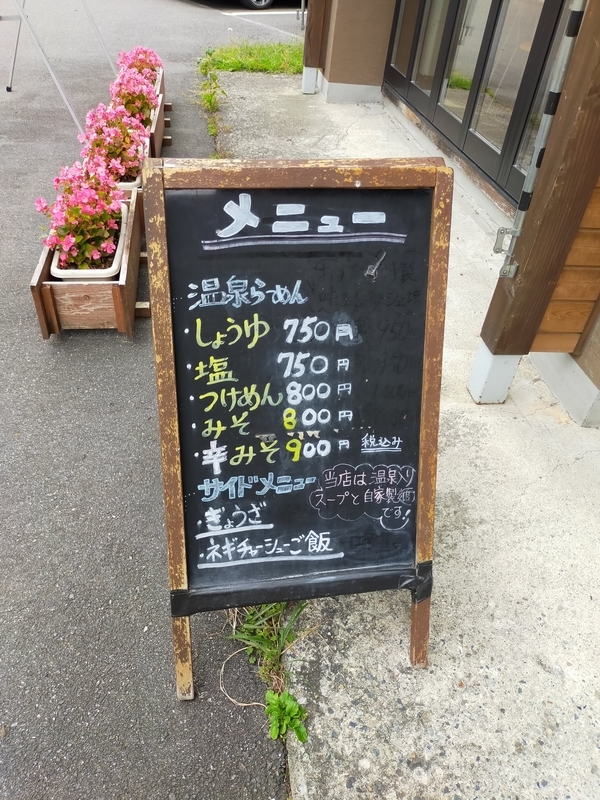 メニュー
温泉らーめん
・しょうゆ 750円
・塩 750円
・つけめん 800円
・みそ 800円
・辛みそ 900円 税込み
サイドメニュー
・ぎょうざ
・ネギチャーシューご飯
当店は温泉入り
スープと自家製麺
です!